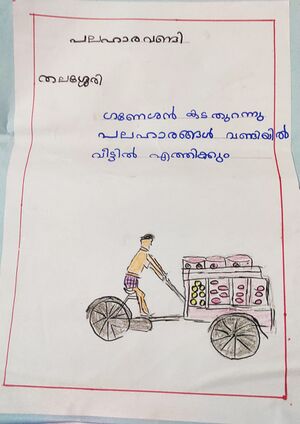 പലഹാരവണ്ടി
തലശ്ശേരി
ഗണേശൻ കടതുറന്നു
പലഹാരങ്ങൾ വണ്ടിയിൽ
വീട്ടിൽ എത്തിക്കും